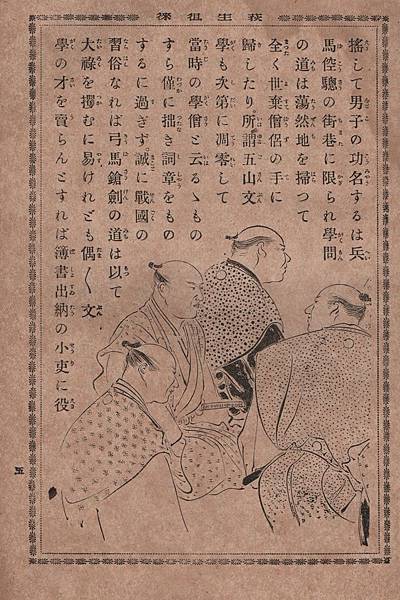 荻生徂徠
搖して男子の功名するは兵
馬倥傯の街巷に限られ學問
の道は蕩然地を掃つて
全く世棄僧侶の手に
歸したり所謂五山文
學も次第に凋零して
當時の學僧と云るゝもの
すら僅に拙き詞章をもの
するに過ぎず誠に戰國の
習俗なれば弓馬鎗劍の道は以て
大祿を攫むに易けれども偶〱文
學の才を賣らんとすれば簿書出納の小吏に役
五